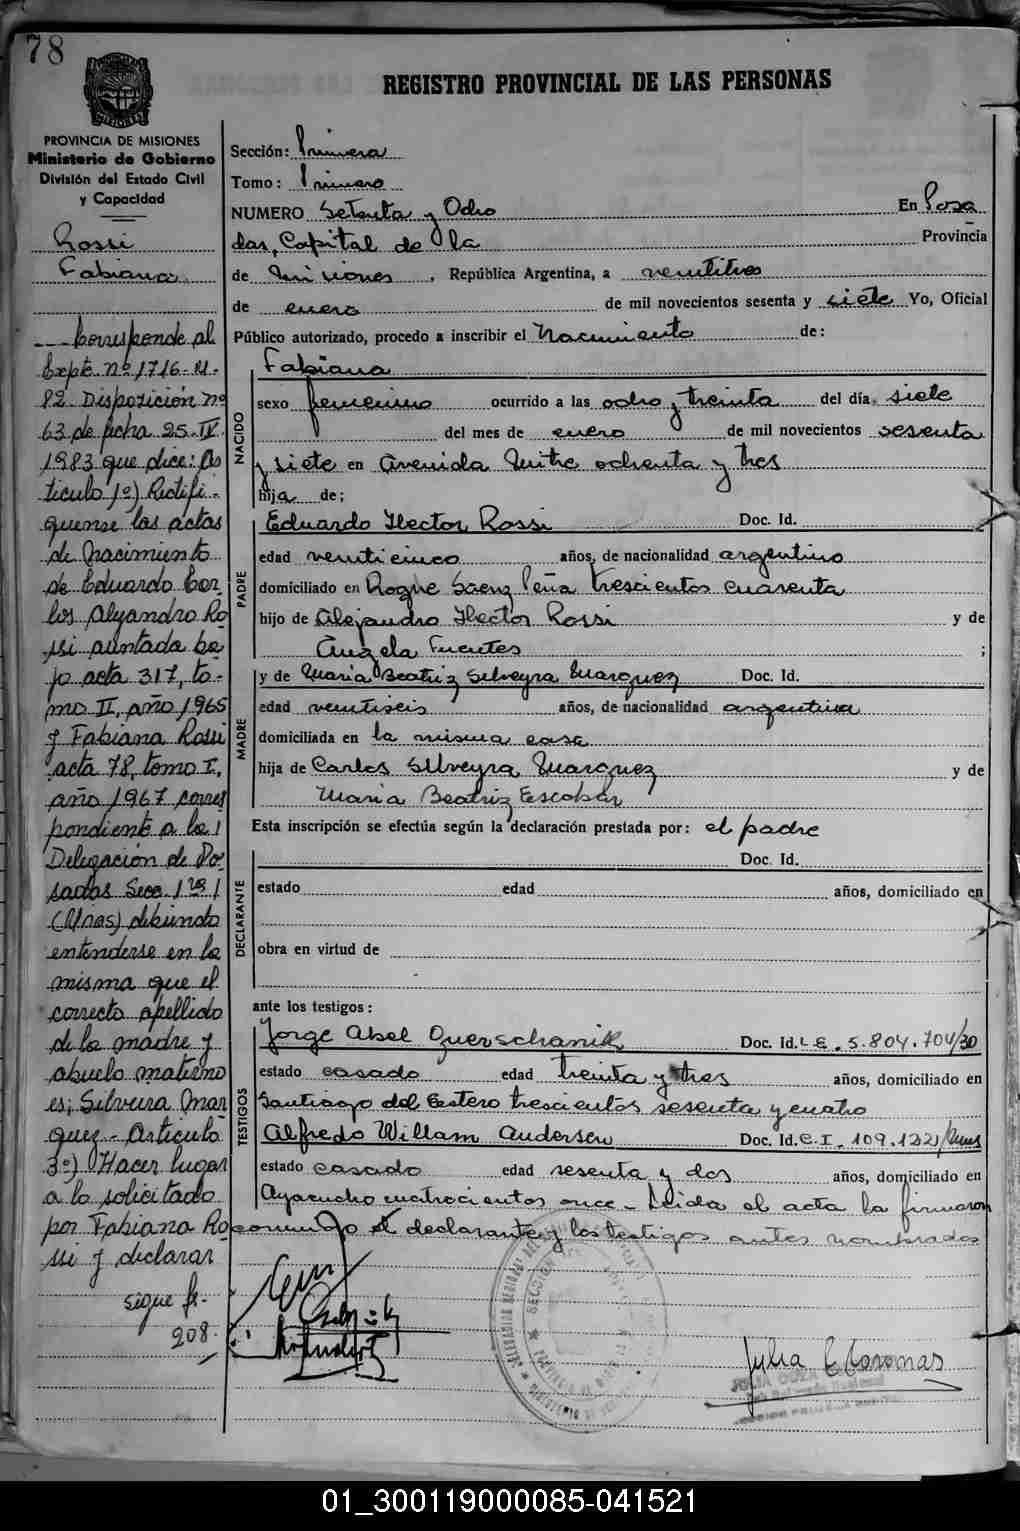 78
REGISTRO PROVINCIAL DE LAS PERSONAS
PROVINCIA DE MISIONES
Ministerio de Gobierno
División del Estado Civil
y Capacidad
Rossi
Fabiana
Corresponde al
Expte. nº 1716-M-
82 Disposición nº
63 de fecha 25-IV-
1983 que dice: Ar
ticulo 1º) Rectifi-
quense las actas
de Nacimiento
de Eduardo Car-
los Alejandro Ro
ssi asentada ba
jo acta 317, to-
mo II, año 1965
y Fabiana Rossi
acta 78, tomo I,
año 1967 corres
pondiente a la
Delegación de Po-
sadas Secc. 1ra
(Mnes) debiendo
entenderse en la
misma que el
correcto apellido
de la madre y
abuelo materno
es; Silveira Mar
quez - Artículo
3º) Hacer lugar
a lo solicitado
por Fabiana Ro
ssi y declarar
sigue fs.
208.
Sección: Primera
Tomo: Primero
NUMERO Setenta y Ocho En Posa
das, Capital de la Provincia
de Misiones, República Argentina, a veintitres
de enero de mil novecientos sesenta y siete Yo, Oficial
Público autorizado, procedo a inscribir el Nacimiento de:
NACIDO
Fabiana
sexo femenino ocurrido a las ocho y treinta del día siete
del mes de enero de mil novecientos sesenta
y siete en Avenida Mitre ochenta y tres
hija de;
PADRE
Eduardo Hector Rossi Doc. Id.
edad veinticinco años, de nacionalidad argentino
domiciliado en Roque Saenz Peña trescientos cuarenta
hijo de Alejandro Hector Rossi y de
Angela Fuentes ;
MADRE
y de Maria Beatriz Silveyra Marquez Doc. Id.
edad veintiseis años, de nacionalidad argentina
domiciliada en la misma casa
hija de Carlos Silveyra Marquez y de
Maria Beatriz Escobar
Esta inscripción se efectúa según la declaración prestada por: el padre
DECLARANTE
Doc. Id.
estado edad años, domiciliado en
obra en virtud de
ante los testigos:
TESTIGOS
Jorge Abel Querschanik Doc. Id. L.E. 5.804.704/30
estado casado edad treinta y tres años, domiciliado en
Santiago del Estero trescientos sesenta y cuatro
Alfredo Willam Andersen Doc. Id. C.I. 109.122/Mnes
estado casado edad sesenta y dos años, domiciliado en
Ayacucho cuatrocientos once - Leida el acta la firmaron
conmigo el declarante y los testigos antes nombrados
Julia
01_300119000085-041521